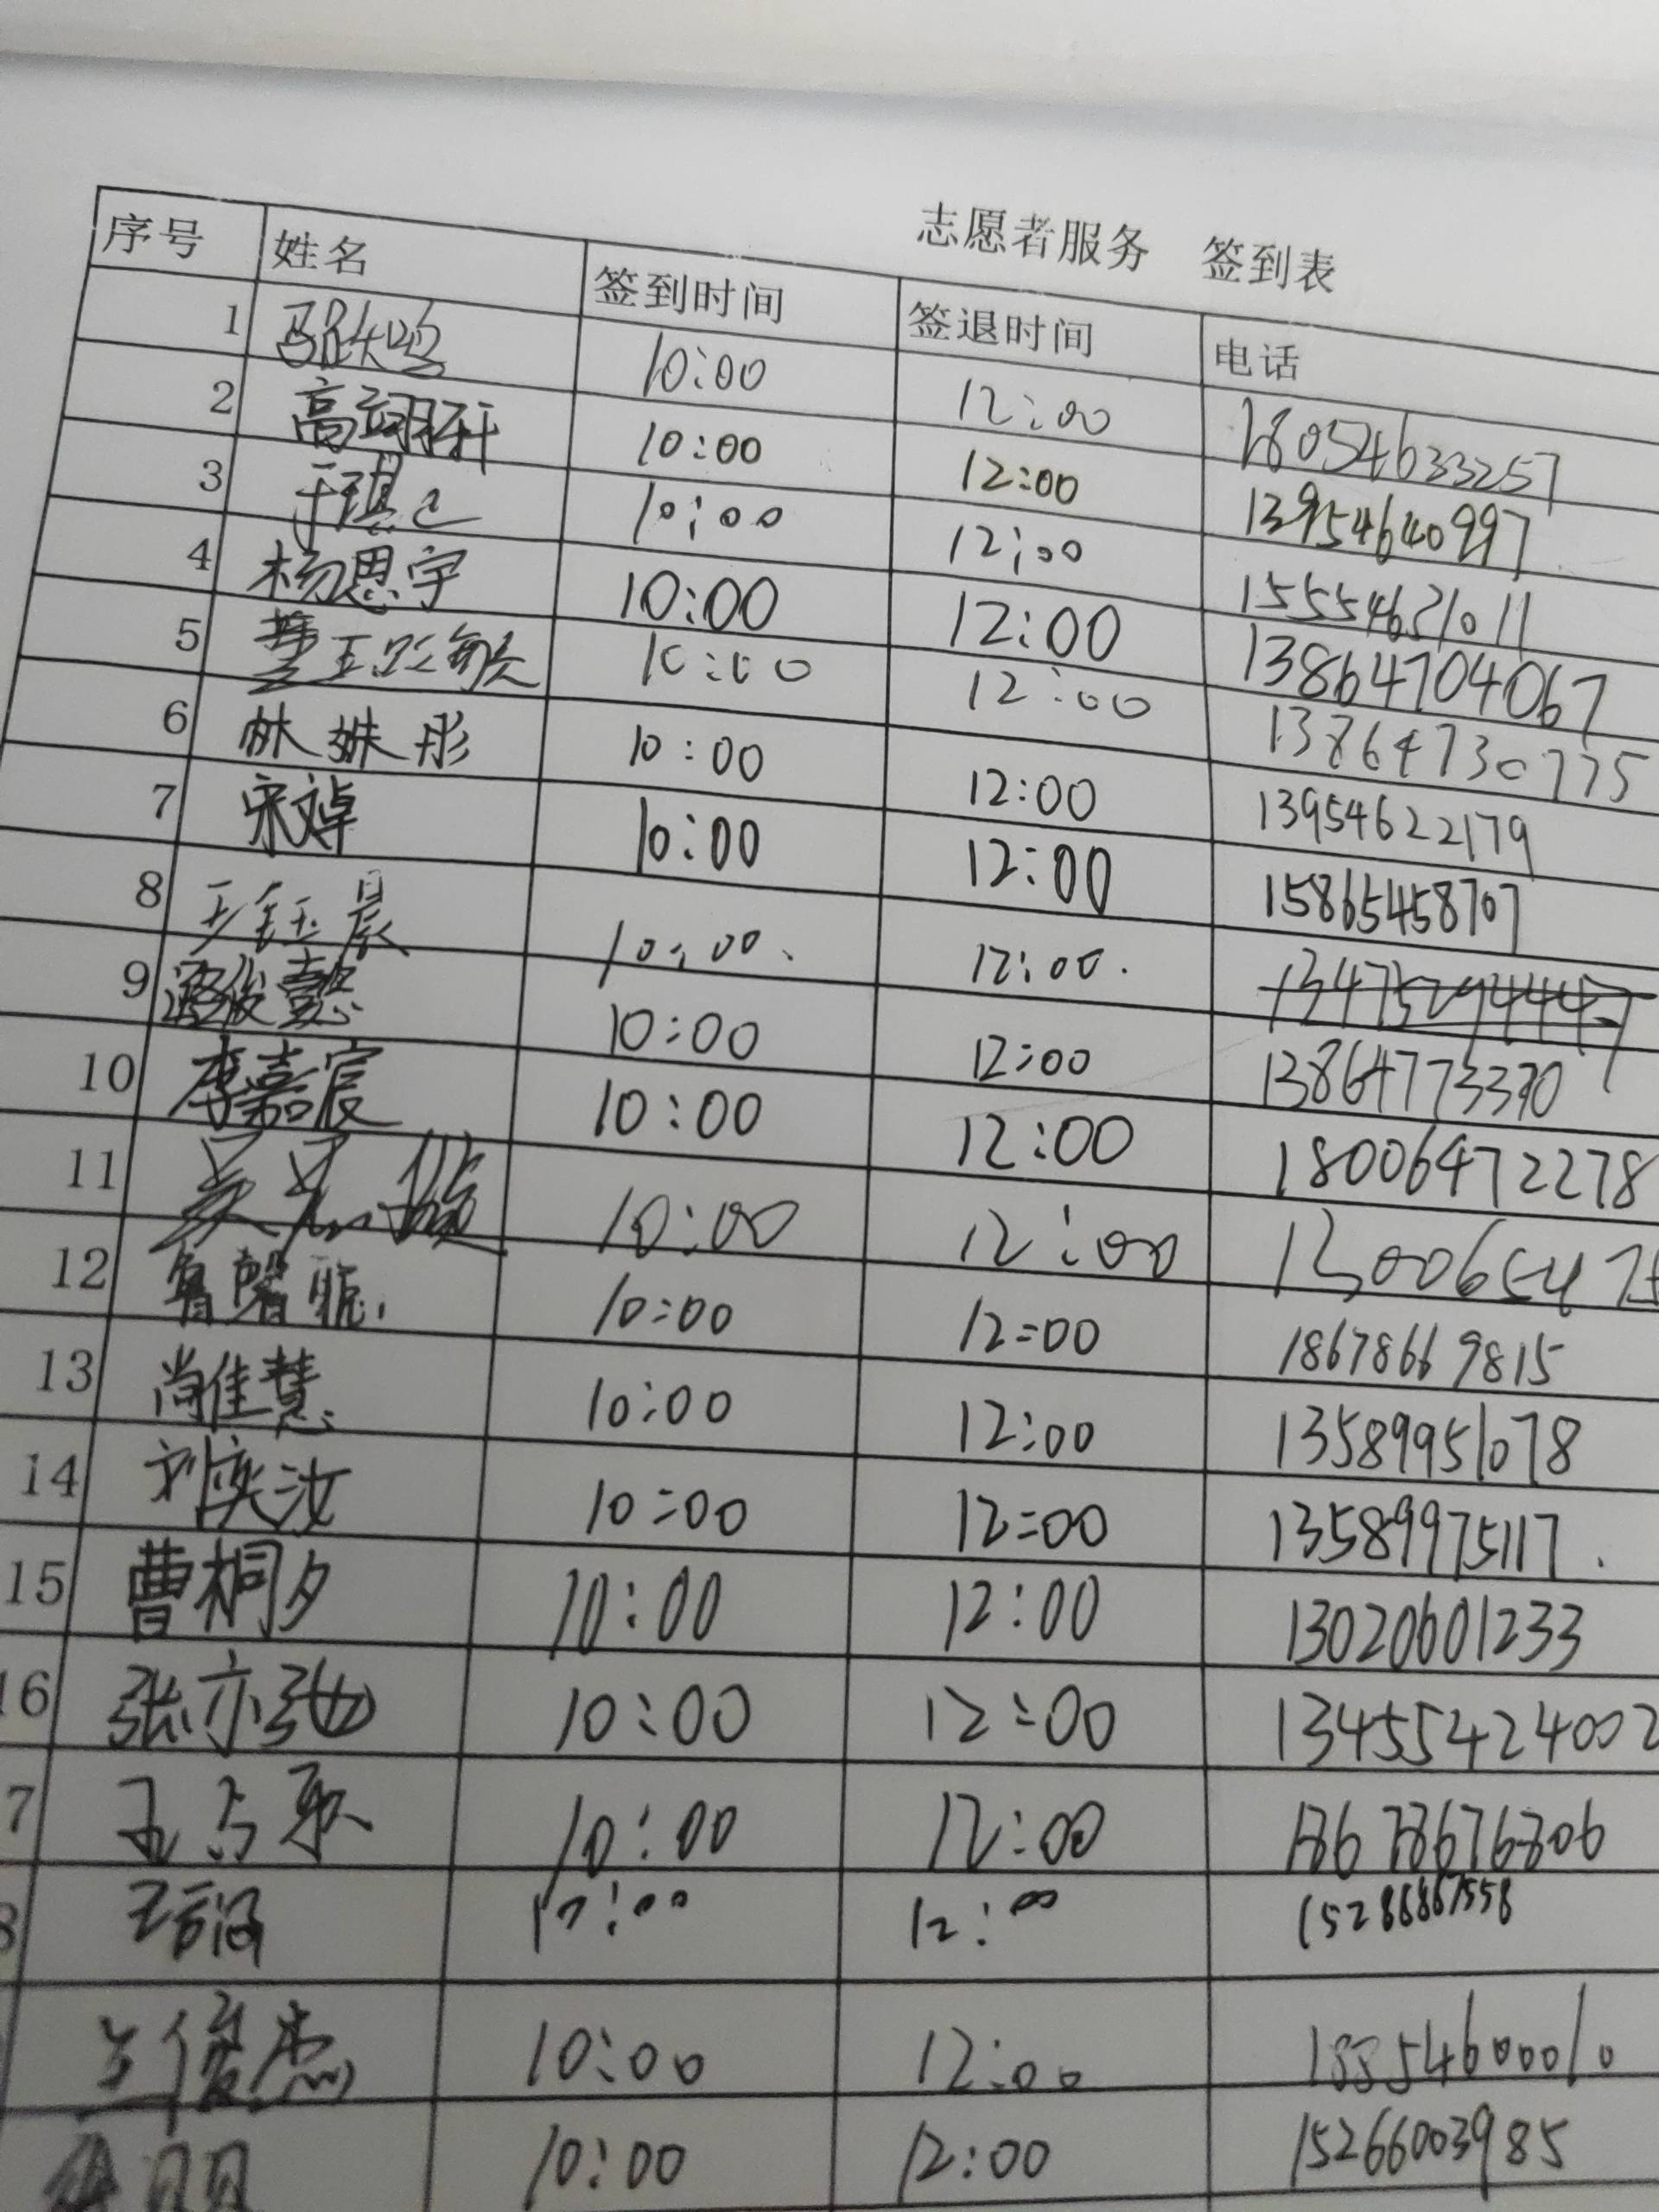 志愿者服务 签到表
序号 姓名 签到时间 签退时间 电话
1 10:00 12:00 18054633257
2 高翊轩 10:00 12:00 13954640997
3 于琪 10:00 12:00 15554631011
4 杨思宇 10:00 12:00 13864704067
5 10:00 12:00 13864730775
6 林姝彤 10:00 12:00 13954622179
7 宋文婥 10:00 12:00 15865458707
8 王钰晨 10:00 12:00
9 俊懿 10:00 12:00 13864773370
10 李嘉宸 10:00 12:00 18006472278
11 10:00 12:00
12 鲁馨 10:00 12:00 18678669815
13 尚佳慧 10:00 12:00 13589951078
14 刘奕汝 10:00 12:00 13589975117
15 曹桐夕 10:00 12:00 13020601233
16 张亦弛 10:00 12:00 13455424002
7 10:00 12:00 18678676806
8 王 12:00
俊杰 10:00 12:00
10:00 12:00 15266003985